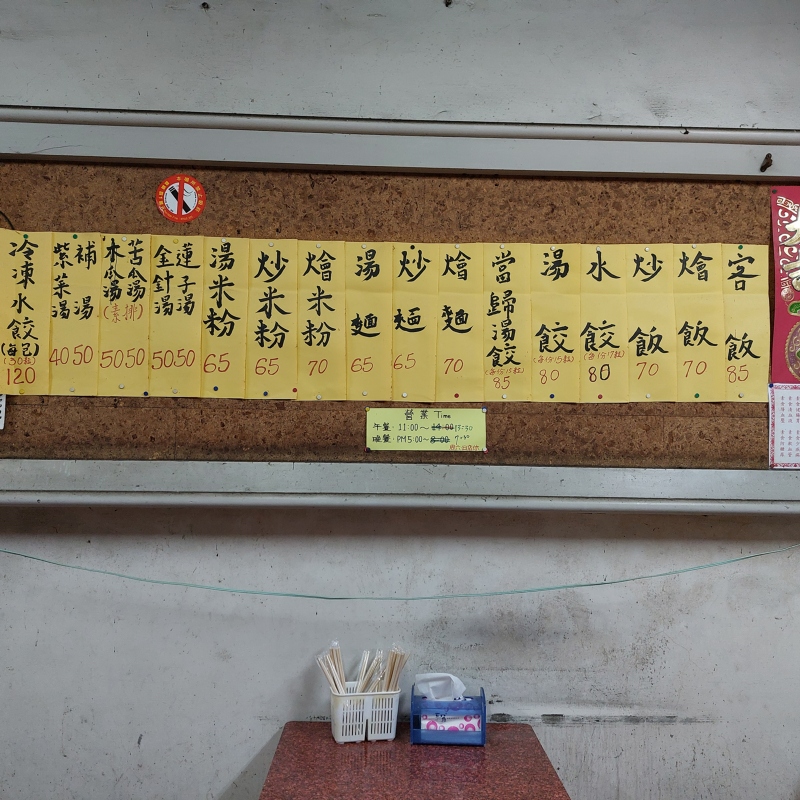 客飯
85
燴飯
70
炒飯
70
水餃
(每份17粒)
80
湯餃
(每份15粒)
80
當歸湯餃
(每份15粒)
85
燴麵
70
炒麵
65
湯麵
65
燴米粉
70
炒米粉
65
湯米粉
65
蓮子湯
50
金針湯
50
苦瓜湯
50
木瓜湯
(素排)
50
補湯
50
紫菜湯
40
冷凍水餃
(每包)
(30粒)
120
營業Time
午餐:11:00~14:00 13:30
晚餐:PM5:00~8:00 7:30